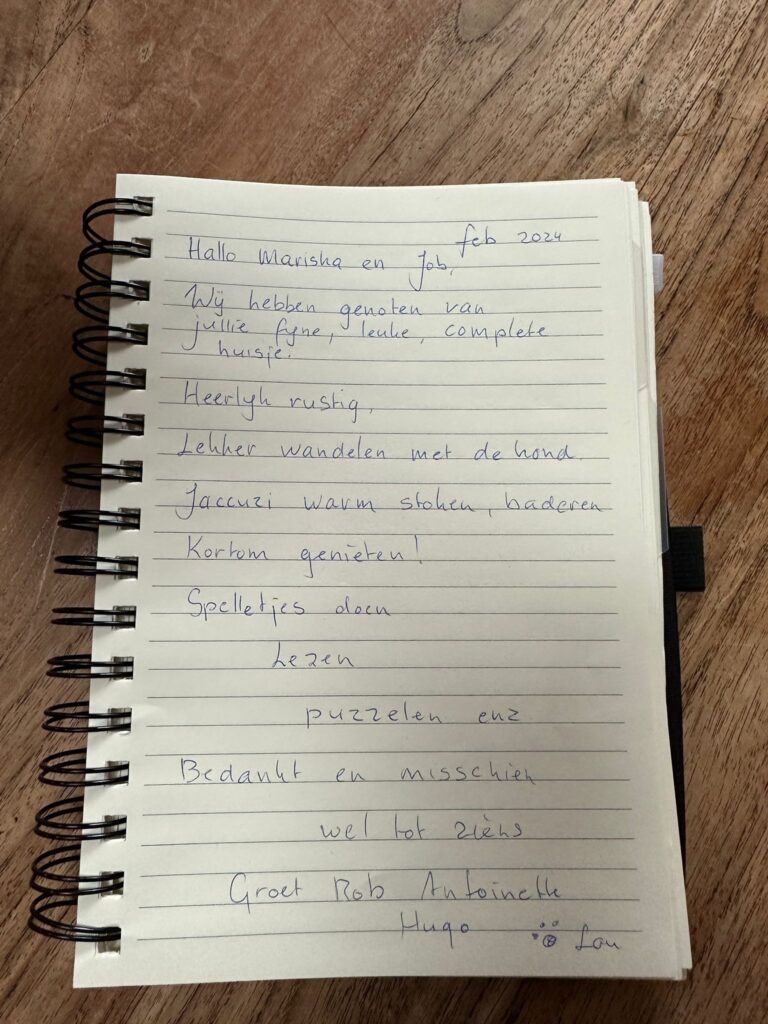 feb 2024
Hallo Mariska en Job,
Wij hebben genoten van
jullie fijne, leuke, complete
huisje.
Heerlijk rustig,
Lekker wandelen met de hond.
Jaccuzi warm stoken, baderen
Kortom genieten!
Spelletjes doen
Lezen
puzzelen enz
Bedankt en misschien
wel tot ziens
Groet Rob Antoinette
Hugo Lou